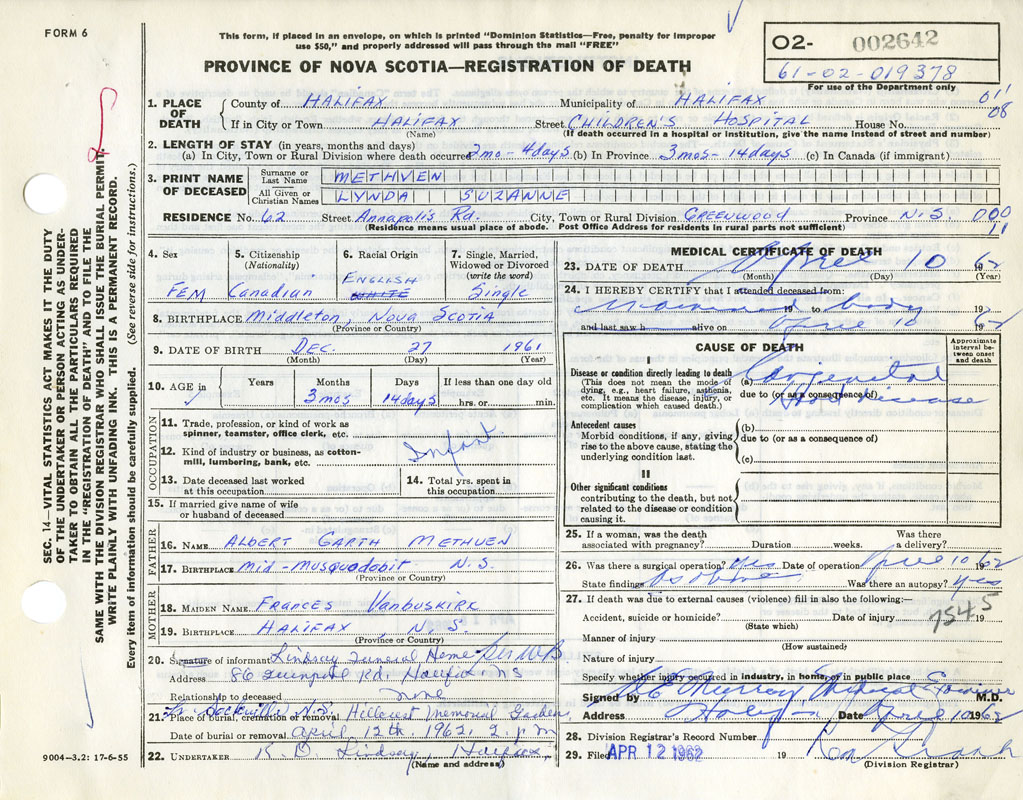 FORM 6
This form, if placed in an envelope, on which is printed "Dominion Statistics—Free, penalty for improper
use $50," and properly addressed will pass through the mail "FREE"
PROVINCE OF NOVA SCOTIA—REGISTRATION OF DEATH
02- 002642
61-02-019378
For use of the Department only
1. PLACE OF DEATH
County of HALIFAX Municipality of HALIFAX 01'
08
If in City or Town HALIFAX Street CHILDREN'S HOSPITAL House No.
(Name) (If death occurred in a hospital or institution, give the name instead of street and number)
2. LENGTH OF STAY (in years, months and days)
(a) In City, Town or Rural Division where death occurred 2mo - 4days (b) In Province 3mos - 14days (c) In Canada (if immigrant)
3. PRINT NAME OF DECEASED
Surname or Last Name METHVEN
All Given or Christian Names LYNDA SUZANNE
RESIDENCE No. 62 Street Annapolis Rd. City, Town or Rural Division GREENWOOD Province N.S. 000
11
(Residence means usual place of abode. Post Office Address for residents in rural parts not sufficient)
4. Sex
FEM
5. Citizenship
(Nationality)
Canadian
6. Racial Origin
ENGLISH
WHITE
7. Single, Married,
Widowed or Divorced
(write the word)
Single
8. BIRTHPLACE Middleton, NOVA SCOTIA
(Province or Country)
9. DATE OF BIRTH DEC. 27 1961
(Month) (Day) (Year)
10. AGE in
Years
Months
3mos
Days
14days
If less than one day old
hrs. or min.
OCCUPATION
11. Trade, profession, or kind of work as
spinner, teamster, office clerk, etc.
12. Kind of industry or business, as cotton-
mill, lumbering, bank, etc.
Infant
13. Date deceased last worked
at this occupation
14. Total yrs. spent in
this occupation
15. If married give name of wife
or husband of deceased
FATHER
16. NAME ALBERT GARTH METHVEN
17. BIRTHPLACE Mid-Musquodobit N.S.
(Province or Country)
MOTHER
18. MAIDEN NAME FRANCES Vanbuskirk
19. BIRTHPLACE HALIFAX, N.S.
(Province or Country)
20. Signature of informant Lindsay Funeral Home
Address 86 Quinpool Rd. Halifax NS
Relationship to deceased none
Sackville N.S.
21. Place of burial, cremation or removal Hillcrest Memorial Gardens
Date of burial or removal April 12th 1962, 2 pm
22. UNDERTAKER Lindsay Halifax
(Name and address)
MEDICAL CERTIFICATE OF DEATH
23. DATE OF DEATH April 10 1962
(Month) (Day) (Year)
24. I HEREBY CERTIFY that I attended deceased from:
19 to body 19
and last saw h alive on April 10 1962
CAUSE OF DEATH
Approximate
interval be-
tween onset
and death
I
Disease or condition directly leading to death
(This does not mean the mode of
dying, e.g., heart failure, asthenia,
etc. It means the disease, injury, or
complication which caused death.)
(a) Congenital
due to (or as a consequence of) Heart disease
Antecedent causes
Morbid conditions, if any, giving
rise to the above cause, stating the
underlying condition last.
(b)
due to (or as a consequence of)
(c)
II
Other significant conditions
contributing to the death, but not
related to the disease or condition
causing it.
25. If a woman, was the death
associated with pregnancy? Duration weeks. Was there
a delivery?
26. Was there a surgical operation? Yes Date of operation April 10 1962
State findings As above Was there an autopsy? yes
27. If death was due to external causes (violence) fill in also the following:—
Accident, suicide or homicide? Date of injury 19
(State which)
7545
Manner of injury
(How sustained)
Nature of injury
Specify whether injury occurred in industry, in home, or in public place
Signed by Murray Medical Examiner M.D.
Address Date April 10 1962
28. Division Registrar's Record Number
29. Filed APR 12 1962 19
(Division Registrar)
SEC. 14—VITAL STATISTICS ACT MAKES IT THE DUTY
OF THE UNDERTAKER OR PERSON ACTING AS UNDER-
TAKER TO OBTAIN ALL THE PARTICULARS REQUIRED
IN THE "REGISTRATION OF DEATH" AND TO FILE THE
SAME WITH THE DIVISION REGISTRAR WHO SHALL ISSUE THE BURIAL PERMIT
WRITE PLAINLY WITH UNFADING INK. THIS IS A PERMANENT RECORD.
Every item of information should be carefully supplied. (See reverse side for instructions.)
9004—3.2: 17-6-55